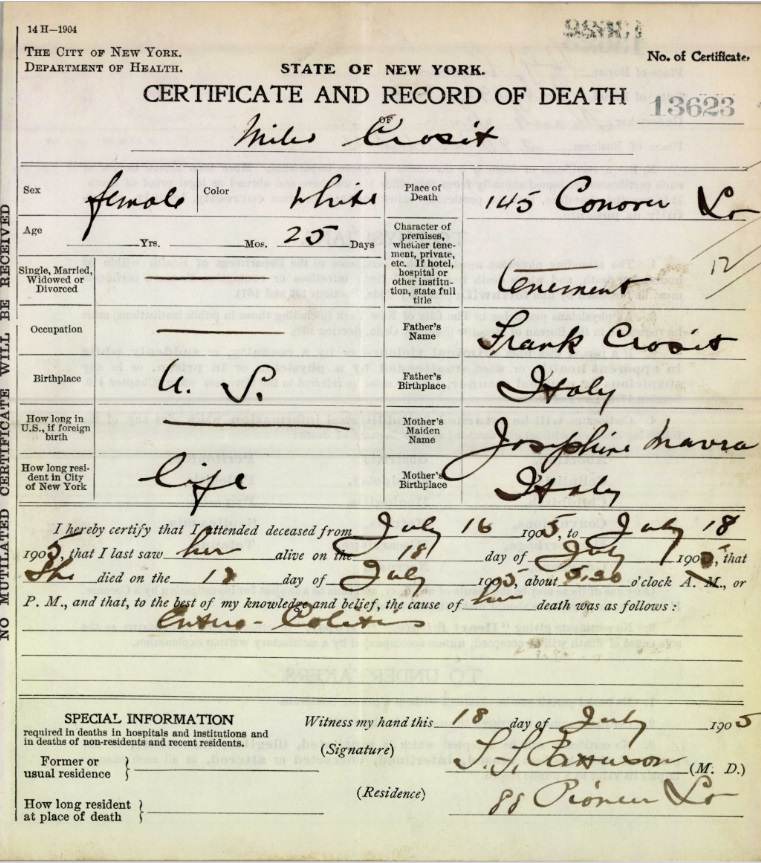 14 H—1904
THE CITY OF NEW YORK.
DEPARTMENT OF HEALTH.
STATE OF NEW YORK.
No. of Certificate,
CERTIFICATE AND RECORD OF DEATH
13623
OF
Crosit
NO MUTILATED CERTIFICATE WILL BE RECEIVED
Sex female Color White
Age Yrs. Mos. 25 Days
Single, Married, Widowed or Divorced
Occupation
Birthplace U. S.
How long in U.S., if foreign birth
How long resident in City of New York life
Place of Death 145 Conover
Character of premises, whether tenement, private, etc. If hotel, hospital or other institution, state full title tenement
12
Father's Name Frank Crosit
Father's Birthplace Italy
Mother's Maiden Name Josephine
Mother's Birthplace Italy
I hereby certify that I attended deceased from July 16 1905, to July 18
1905, that I last saw her alive on the 18 day of July 1905, that
She died on the 18 day of July 1905, about 5,20 o'clock A. M., or
P. M., and that, to the best of my knowledge and belief, the cause of her death was as follows:
Entero-Colitis
SPECIAL INFORMATION
required in deaths in hospitals and institutions and
in deaths of non-residents and recent residents.
Former or
usual residence
How long resident
at place of death
Witness my hand this 18 day of July 1905
(Signature) (M. D.)
(Residence) 88 Pioneer